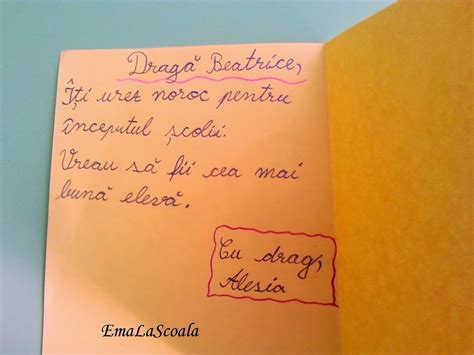 Dragă Beatrice,
Îți urez noroc pentru
începutul școlii.
Vreau să fii cea mai
bună elevă.
Cu drag,
Alesia
EmaLaScoala